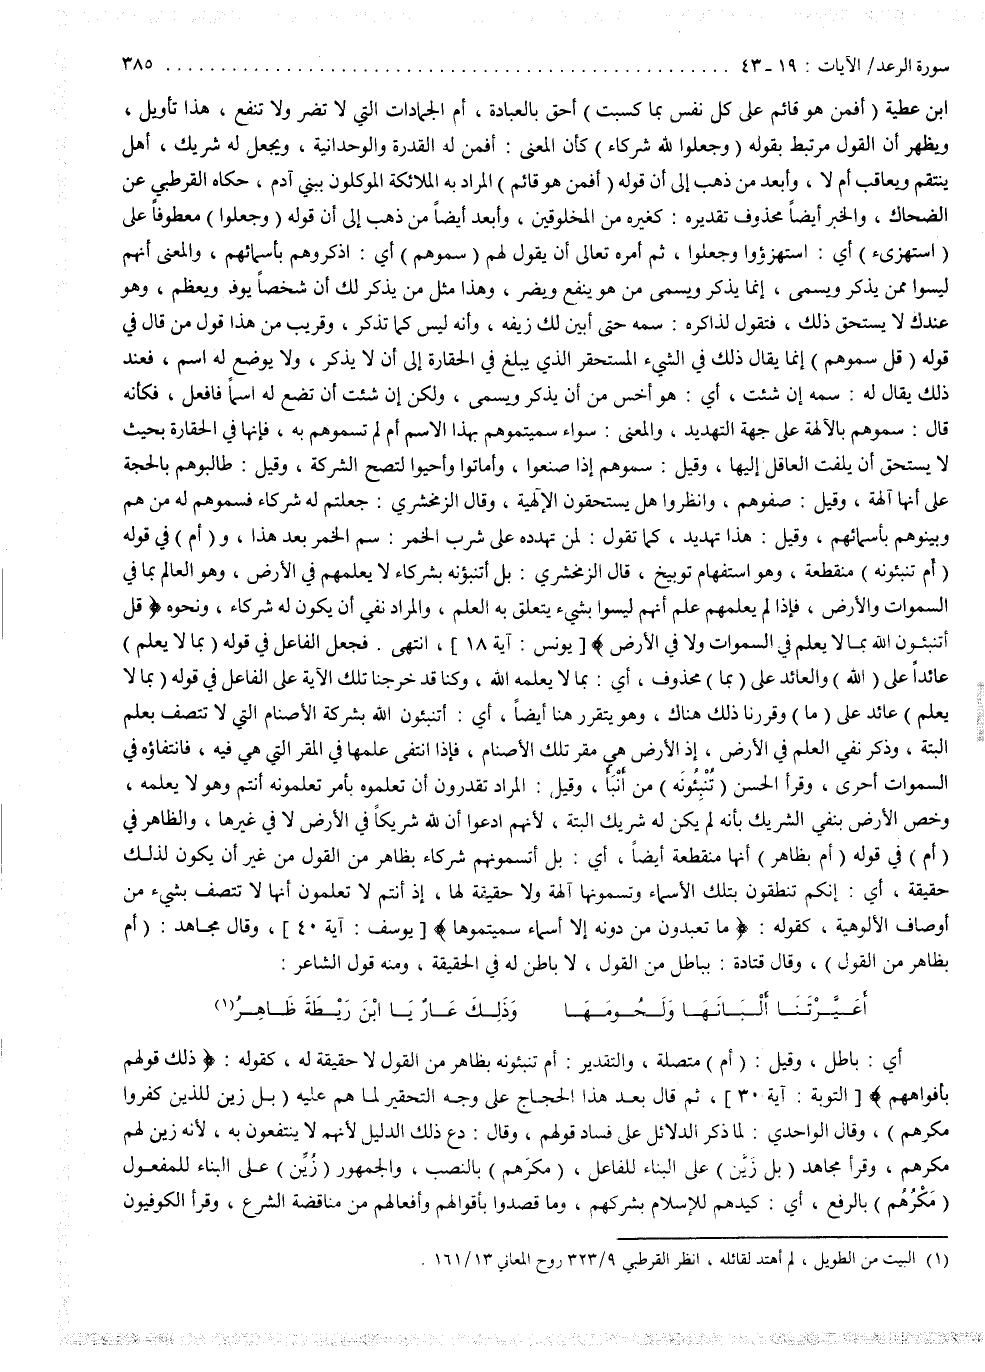 سورة الرعد/ الآيات : ١٩ ـ ٤٣ ........................................................ ٣٨٥
ابن عطية ( أفمن هو قائم على كل نفس بما كسبت ) أحق بالعبادة ، أم الجمادات التي لا تضر ولا تنفع ، هذا تأويل ،
ويظهر أن القول مرتبط بقوله ( وجعلوا لله شركاء ) كأن المعنى : أفمن له القدرة والوحدانية ، ويجعل له شريك ، أهل
ينتقم ويعاقب أم لا ، وأبعد من ذهب إلى أن قوله ( أفمن هو قائم ) المراد به الملائكة الموكلون ببني آدم ، حكاه القرطبي عن
الضحاك ، والخبر أيضاً محذوف تقديره : كغيره من المخلوقين ، وأبعد أيضاً من ذهب إلى أن قوله ( وجعلوا ) معطوفاً على
( استهزىء ) أي : استهزؤوا وجعلوا ، ثم أمره تعالى أن يقول لهم ( سموهم ) أي : اذكروهم بأسمائهم ، والمعنى أنهم
ليسوا ممن يذكر ويسمى ، إنما يذكر ويسمى من هو ينفع ويضر ، وهذا مثل من يذكر لك أن شخصاً يوفد ويعظم ، وهو
عندك لا يستحق ذلك ، فتقول لذاكره : سمه حتى أبين لك زيفه ، وأنه ليس كما تذكر ، وقريب من هذا قول من قال في
قوله ( قل سموهم ) إنما يقال ذلك في الشيء المستحقر الذي يبلغ في الحقارة إلى أن لا يذكر ، ولا يوضع له اسم ، فعند
ذلك يقال له : سمه إن شئت ، أي : هو أخس من أن يذكر ويسمى ، ولكن إن شئت أن تضع له اسماً فافعل ، فكأنه
قال : سموهم بالآلهة على جهة التهديد ، والمعنى : سواء سميتموهم بهذا الاسم أم لم تسموهم به ، فإنها في الحقارة بحيث
لا يستحق أن يلفت العاقل إليها ، وقيل : سموهم إذا صنعوا ، وأماتوا وأحيوا لتصح الشركة ، وقيل : طالبوهم بالحجة
على أنها آلهة ، وقيل : صفوهم ، وانظروا هل يستحقون الإلٰهية ، وقال الزمخشري : جعلتم له شركاء فسموهم له من هم
وبينوهم بأسمائهم ، وقيل : هذا تهديد ، كما تقول : لمن تهدده على شرب الخمر : سم الخمر بعد هذا ، و ( أم ) في قوله
( أم تنبئونه ) منقطعة ، وهو استفهام توبيخ ، قال الزمخشري : بل أتنبؤنه بشركاء لا يعلمهم في الأرض ، وهو العالم بما في
السموات والأرض ، فإذا لم يعلمهم علم أنهم ليسوا بشيء يتعلق به العلم ، والمراد نفي أن يكون له شركاء ، ونحوه ﴿ قل
أتنبئون الله بما لا يعلم في السموات ولا في الأرض ﴾ [ يونس : آية ١٨ ] ، انتهى . فجعل الفاعل في قوله ( بما لا يعلم )
عائداً على ( الله ) والعائد على ( بما ) محذوف ، أي : بما لا يعلمه الله ، وكنا قد خرجنا تلك الآية على الفاعل في قوله ( بما لا
يعلم ) عائد على ( ما ) وقررنا ذلك هناك ، وهو يتقرر هنا أيضاً ، أي : أتنبئون الله بشركة الأصنام التي لا تتصف بعلم
البتة ، وذكر نفي العلم في الأرض ، إذ الأرض هي مقر تلك الأصنام ، فإذا انتفى علمها في المقر التي هي فيه ، فانتفاؤه في
السموات أحرى ، وقرأ الحسن ( تُنْبِئُونَه ) من أَنْبَأ ، وقيل : المراد تقدرون أن تعلموه بأمر تعلمونه أنتم وهو لا يعلمه ،
وخص الأرض بنفي الشريك بأنه لم يكن له شريك البتة ، لأنهم ادعوا أن لله شريكاً في الأرض لا في غيرها ، والظاهر في
( أم ) في قوله ( أم بظاهر ) أنها منقطعة أيضاً ، أي : بل أتسمونهم شركاء بظاهر من القول من غير أن يكون لذلك
حقيقة ، أي : إنكم تنطقون بتلك الأسماء وتسمونها آلهة ولا حقيقة لها ، إذ أنتم لا تعلمون أنها لا تتصف بشيء من
أوصاف الألوهية ، كقوله : ﴿ ما تعبدون من دونه إلا أسماء سميتموها ﴾ [ يوسف : آية ٤٠ ] ، وقال مجاهد : ( أم
بظاهر من القول ) ، وقال قتادة : بباطل من القول ، لا باطن له في الحقيقة ، ومنه قول الشاعر :
أَعَيَّرْتَنَا أَلْبَانَهَا وَلَحُومَهَا وَذَلِكَ عَارٌ يَا ابْنَ رَيْطَةَ ظَاهِرُ(١)
أي : باطل ، وقيل : ( أم ) متصلة ، والتقدير : أم تنبئونه بظاهر من القول لا حقيقة له ، كقوله : ﴿ ذلك قولهم
بأفواههم ﴾ [ التوبة : آية ٣٠ ] ، ثم قال بعد هذا الحجاج على وجه التحقير لما هم عليه ( بل زين للذين كفروا
مكرهم ) ، وقال الواحدي : لما ذكر الدلائل على فساد قولهم ، وقال : دع ذلك الدليل لأنهم لا ينتفعون به ، لأنه زين لهم
مكرهم ، وقرأ مجاهد ( بل زَيَّن ) على البناء للفاعل ، ( مكرَهم ) بالنصب ، والجمهور ( زُيِّن ) على البناء للمفعول
( مَكْرُهُم ) بالرفع ، أي : كيدهم للإسلام بشركهم ، وما قصدوا بأقوالهم وأفعالهم من مناقضة الشرع ، وقرأ الكوفيون
(١) البيت من الطويل ، لم أهتد لقائله ، انظر القرطبي ٣٢٣/٩ روح المعاني ١٦١/١٣ .